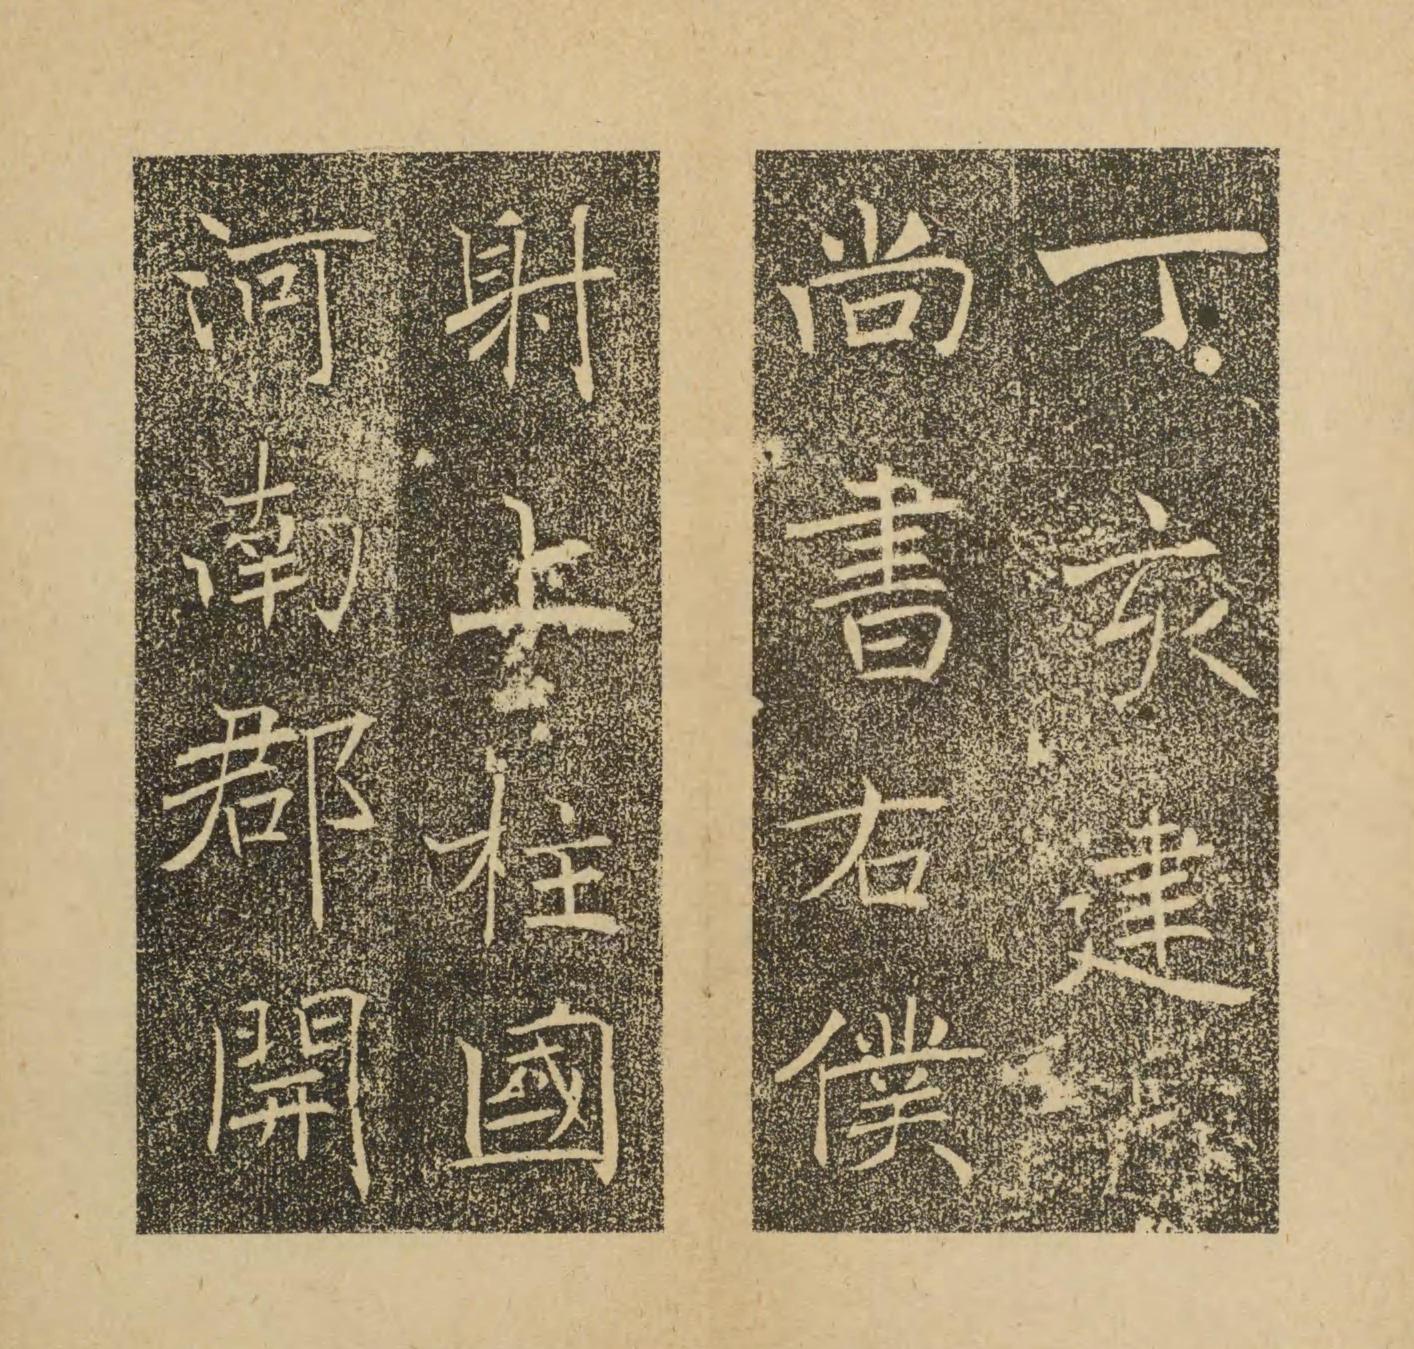 丁亥建
尚書右僕
射上柱國
河南郡開